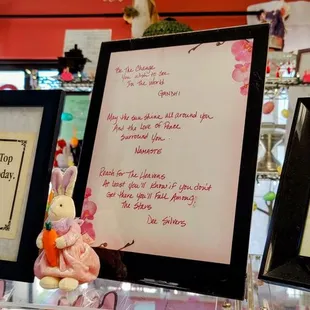 Be The Change
You wish to see
In the World
GANDHI
May the sun shine all around you
And the Love of Peace
Surround You
NAMASTE
Reach For The Heavens
At least you'll know if you don't
Get there you'll Fall Among
The Stars
Dee Silvers
Top
day.